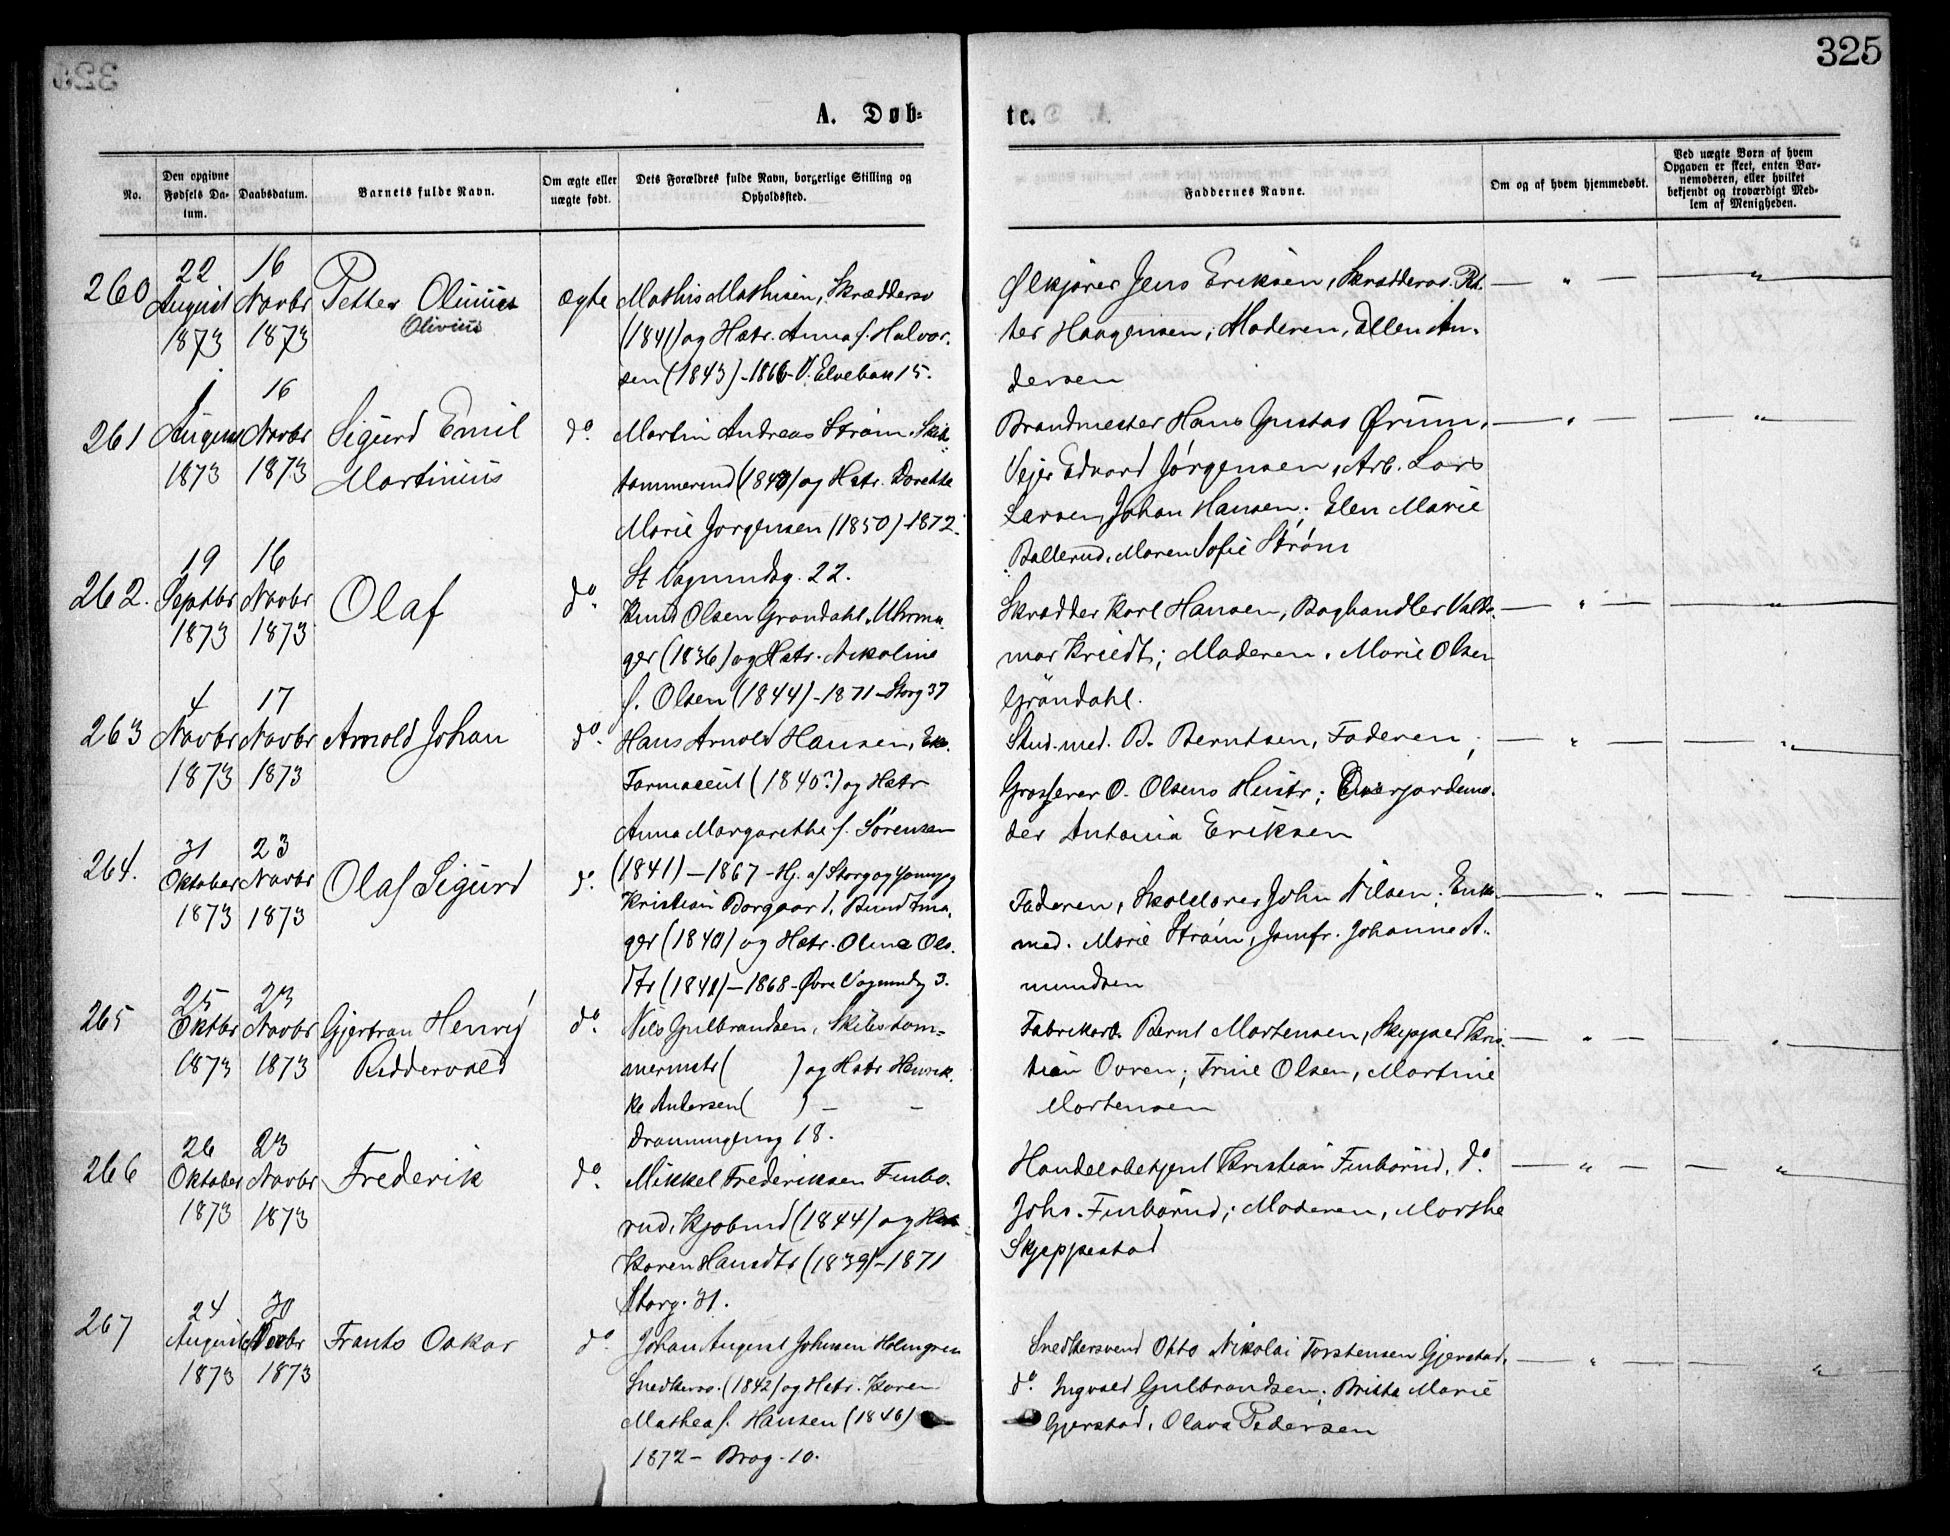 325
A. Døb-
te.
No.
Den opgivne
Fødsels Da-
tum.
Daabsdatum.
Barnets fulde Navn.
Om ægte eller
uægte født.
Dets Forældres fulde Navn, borgerlige Stilling og
Opholdssted.
Faddernes Navne.
Om og af hvem hjemmedøbt.
Ved uægte Børn af hvem
Opgaven er skeet, enten Bar-
nemoderen, eller hvilket
bekjendt og troværdigt Med-
lem af Menigheden.
260
22
August
1873
16
Novbr
1873
Petter Olinius
Olivius
ægte
Mathis Mathisen, Skræddersv
(1841) og Hstr. Anna f. Halvor-
sen (1843) - 1866 - V. Elvebak 15.
Ølkjører Jens Eriksen, Skræddersv. Pet-
ter Haagensen; Moderen, Ellen An-
dersen
261
1
August
1873
16
Novbr
1873
Sigurd Emil
Martinius
do.
Martin Andreas Strøm, Skibs-
tømmermd (1840) og Hstr. Dorethe
Marie Jørgensen (1850) - 1872.
St Vognmdsg. 22.
Brandmester Hans Gustav Ørum,
Vejer Edvard Jørgensen, Arb. Lars
Larsen, Johan Hansen; Elen Marie
Ballerud, Maren Sofie Strøm
262.
19
Septbr
1873
16
Novbr
1873
Olaf
do.
Knud Olsen Grøndahl, Uhrma-
ger (1836) og Hstr. Nikoline
f. Olsen (1844) - 1871 - Storg 37
Skrædder Karl Hansen, Boghandler Valde-
mar Kriedt; Moderen, Marie Olsen
Grøndahl.
263
4
Novbr
1873
17
Novbr
1873
Arnold Johan
do.
Hans Arnold Hansen, Ex.
Farmaceut (1840?) og Hstr
Anna Margarethe f. Sørensen
(1841) - 1867 - Hj. af Storg og
Stud. med. B. Berntsen, Faderen;
Grosserer O. Olsens Hustr; Overjordemo-
der Antonia Eriksen
264.
31
Oktober
1873
23
Novbr
1873
Olaf Sigurd
do.
Kristian Borgaard, Bundtma-
ger (1840) og Hstr. Oline Ols-
dtr (1841) - 1868 - Øvre Vognmdg 3.
Faderen, Skolelærer John Nilsen; Enke-
mad. Marie Strøm, Jomfr. Johanne A-
mundsen
265
25
Oktbr
1873
23
Novbr
1873
Gjertran Henrij
Riddervold
do.
Nils Gulbrandsen, Skibstøm-
mermstr ( ) og Hstr Henrik-
ke Andersen ( ) - -
Drammensveg 18.
Fabrikarb. Bernt Mortensen, Skipper Kris-
tian Ovren; Trine Olsen, Martine
Mortensen
266
26
Oktober
1873
23
Novbr
1873
Frederik
do.
Mikkel Frederiksen Finbø-
rud, Kjøbmd (1844) og Hstr
Karen Hansdtr (1839) - 1871
Storg. 31.
Handelsbetjent Kristian Finbørud, do.
Johs. Finbørud; Moderen, Marthe
Skjeppestad
267
24
August
1873
30
Novbr
1873
Frants Oskar
do.
Johan August Johnsen Holmgren
Snedkersv. (1842) og Hstr. Karen
Mathea f. Hansen (1846)
1872 - Brog. 10.
Snedkersvend Otto Nikolai Torstensen Gjerstad,
do. Ingvald Gulbrandsen; Brista Marie
Gjerstad, Olava Pedersen